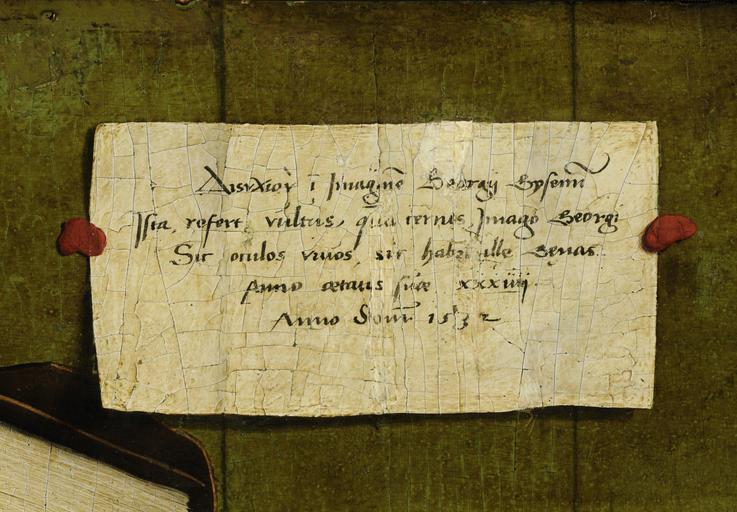 Δίστιχον ĩ Imaginẽ Georgij Gysenii
Ista refert vultus, quã cernis, Imago Georgi
Sic oculos vivos, sic habet ille Genas
Anno ætatis suæ xxxiiij
Anno Dom̃ 1532